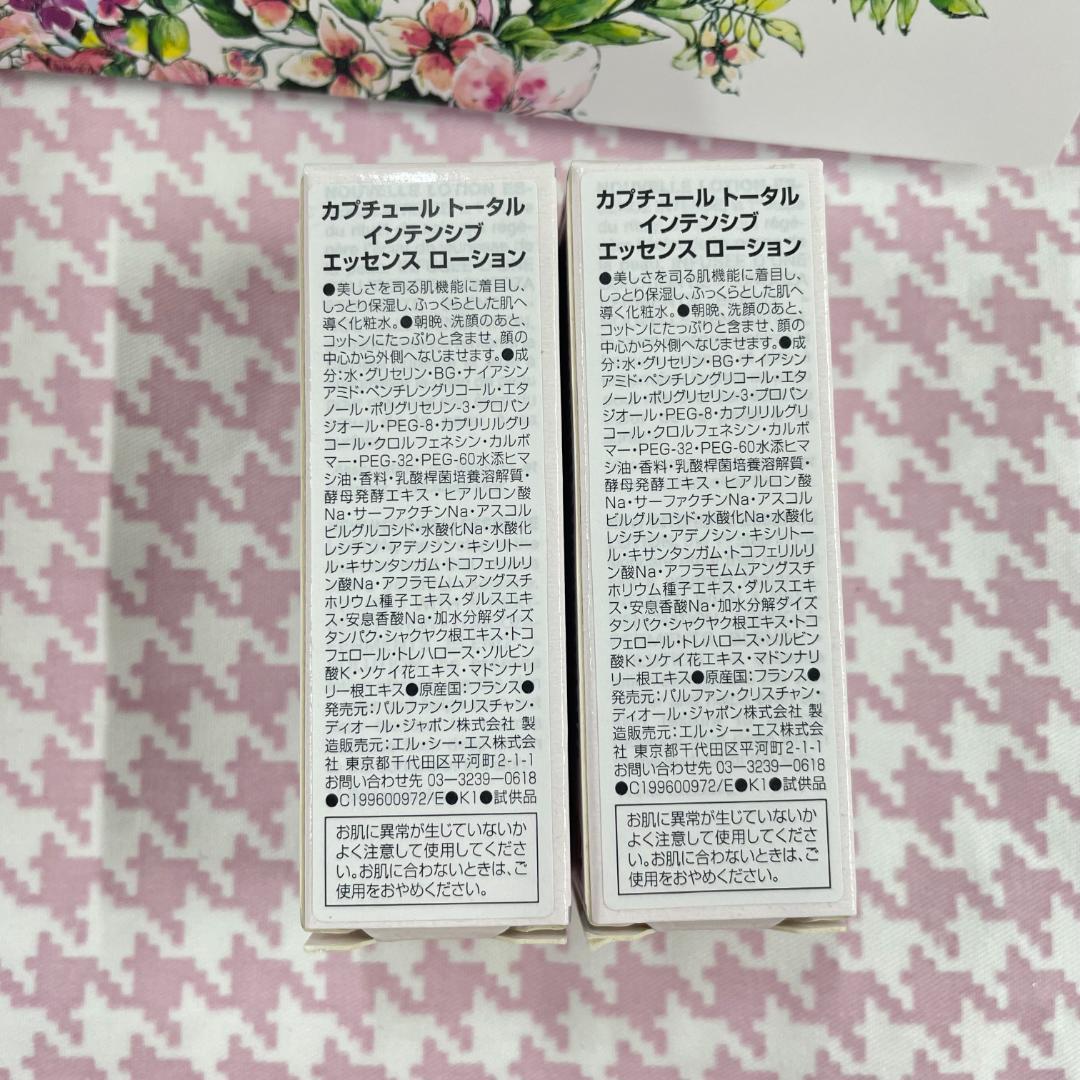 カプチュール トータル
インテンシブ
エッセンス ローション
●美しさを司る肌機能に着目し、
しっとり保湿し、ふっくらとした肌へ
導く化粧水。●朝晩、洗顔のあと、
コットンにたっぷりと含ませ、顔の
中心から外側へなじませます。●成
分:水・グリセリン・BG・ナイアシン
アミド・ペンチレングリコール・エタ
ノール・ポリグリセリン-3・プロパン
ジオール・PEG-8・カプリリルグリ
コール・クロルフェネシン・カルボ
マー・PEG-32・PEG-60水添ヒマ
シ油・香料・乳酸桿菌培養溶解質・
酵母発酵エキス・ヒアルロン酸
Na・サーファクチンNa・アスコル
ビルグルコシド・水酸化Na・水酸化
レシチン・アデノシン・キシリトー
ル・キサンタンガム・トコフェリルリ
ン酸Na・アフラモムムアングスチ
ホリウム種子エキス・ダルスエキ
ス・安息香酸Na・加水分解ダイズ
タンパク・シャクヤク根エキス・トコ
フェロール・トレハロース・ソルビン
酸K・ソケイ花エキス・マドンナリ
リー根エキス●原産国:フランス●
発売元:パルファン・クリスチャン・
ディオール・ジャポン株式会社 製
造販売元:エル・シー・エス株式会
社 東京都千代田区平河町2-1-1
お問い合わせ先 03-3239-0618
●C199600972/E●K1●試供品
お肌に異常が生じていないか
よく注意して使用してくださ
い。お肌に合わないときは、ご
使用をおやめください。
カプチュール トータル
インテンシブ
エッセンス ローション
●美しさを司る肌機能に着目し、
しっとり保湿し、ふっくらとした肌へ
導く化粧水。●朝晩、洗顔のあと、
コットンにたっぷりと含ませ、顔の
中心から外側へなじませます。●成
分:水・グリセリン・BG・ナイアシン
アミド・ペンチレングリコール・エタ
ノール・ポリグリセリン-3・プロパン
ジオール・PEG-8・カプリリルグリ
コール・クロルフェネシン・カルボ
マー・PEG-32・PEG-60水添ヒマ
シ油・香料・乳酸桿菌培養溶解質・
酵母発酵エキス・ヒアルロン酸
Na・サーファクチンNa・アスコル
ビルグルコシド・水酸化Na・水酸化
レシチン・アデノシン・キシリトー
ル・キサンタンガム・トコフェリルリ
ン酸Na・アフラモムムアングスチ
ホリウム種子エキス・ダルスエキ
ス・安息香酸Na・加水分解ダイズ
タンパク・シャクヤク根エキス・トコ
フェロール・トレハロース・ソルビン
酸K・ソケイ花エキス・マドンナリ
リー根エキス●原産国:フランス●
発売元:パルファン・クリスチャン・
ディオール・ジャポン株式会社 製
造販売元:エル・シー・エス株式会
社 東京都千代田区平河町2-1-1
お問い合わせ先 03-3239-0618
●C199600972/E●K1●試供品
お肌に異常が生じていないか
よく注意して使用してくださ
い。お肌に合わないときは、ご
使用をおやめください。